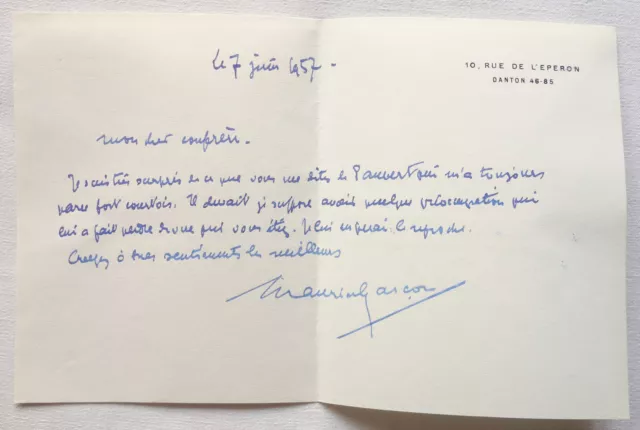 le 7 juin 1957 -
10, RUE DE L'EPERON
DANTON 46-85
mon cher confrère.
Je suis très surpris de ce que vous me dites de Pauvert qui m'a toujours
paru fort courtois. Il devait je suppose avoir quelque préoccupation qui
lui a fait perdre de vue qui vous étiez. Je lui en ferai le reproche.
Croyez à mes sentiments les meilleurs
Maurice Garçon